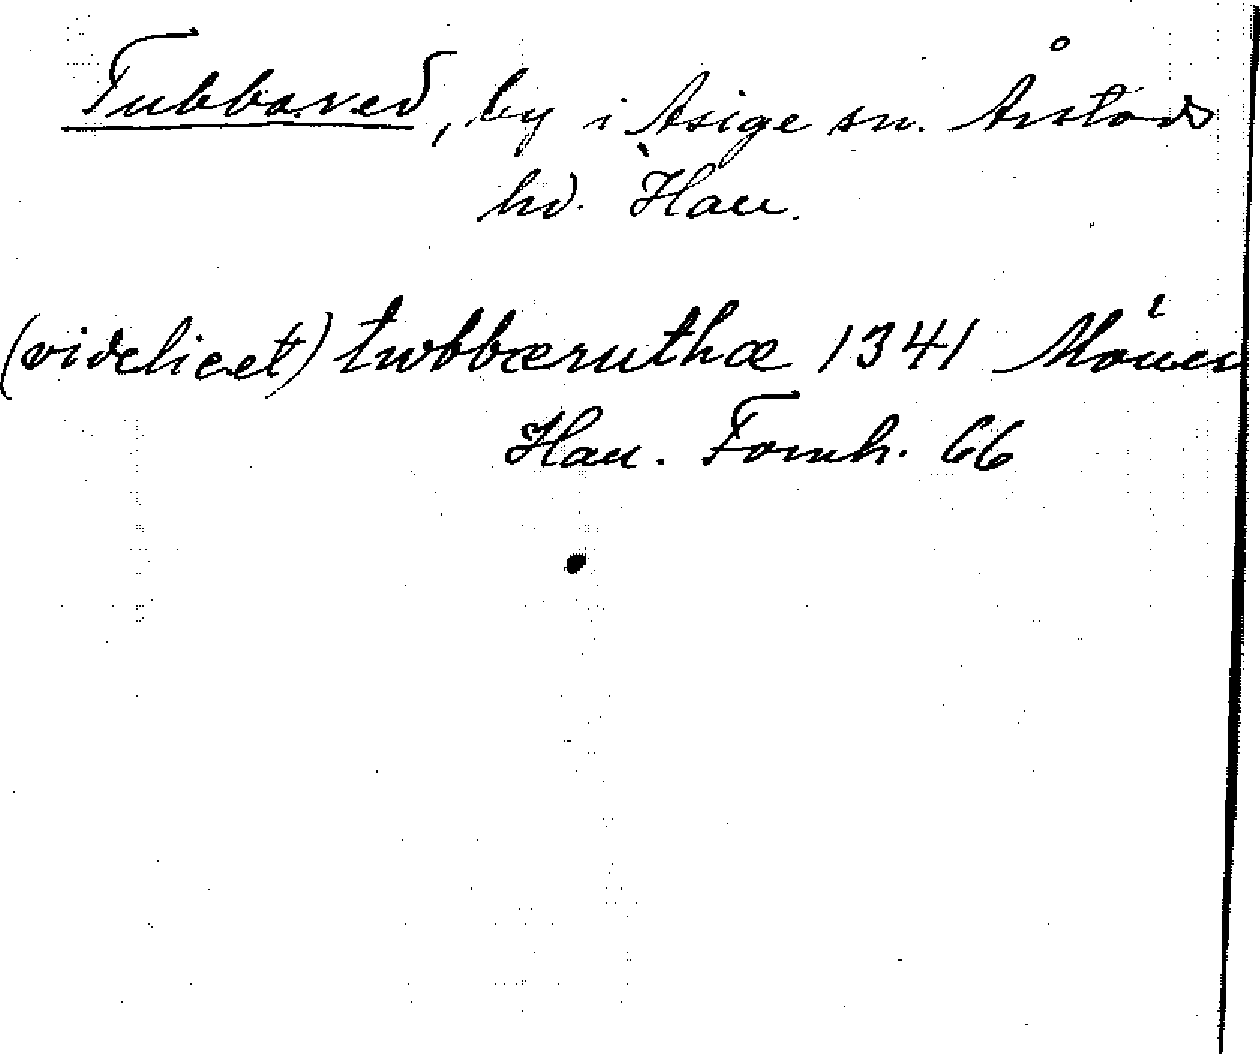 Tubbared, by i Asige sn. Årstads
hd. Hall.
(videlicet) twbbæruthæ 1341
Hall. Fornh. 66